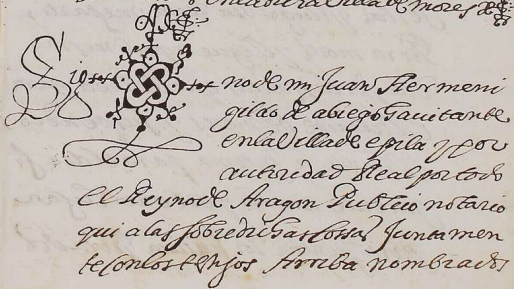 en la dicha Villa de mores
Sig no de mi Juan Hermeni
gildo de abiego havitante
en la Villa de epila y por
autoridad Real por todo
El Reyno de Aragon Publico notario
qui a las sobredichas cossas Juntamen
te con los testigos Arriba nombrados